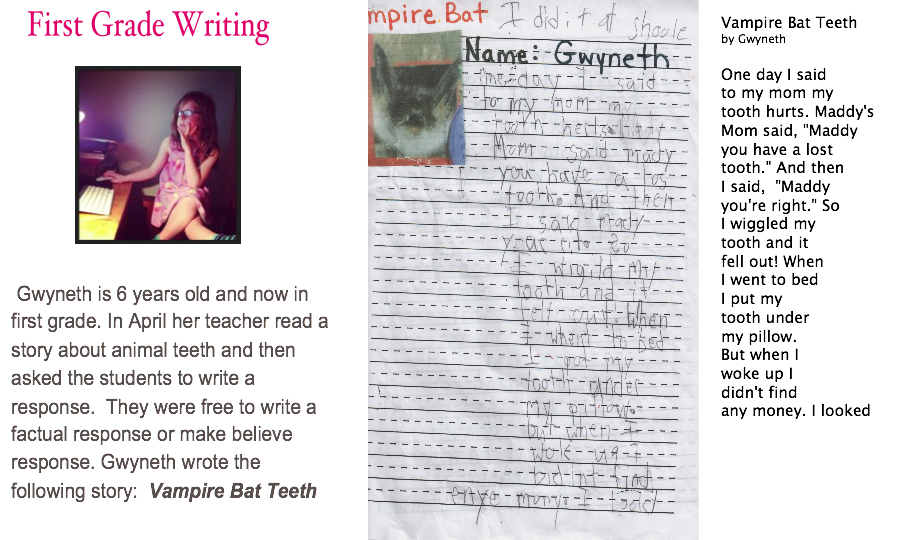 First Grade Writing
Gwyneth is 6 years old and now in
first grade. In April her teacher read a
story about animal teeth and then
asked the students to write a
response. They were free to write a
factual response or make believe
response. Gwyneth wrote the
following story: Vampire Bat Teeth
mpire Bat I did it at shoole
Name: Gwyneth
I said
to my mom my
tooth herts. Mady
Mom said mady
you have a los
tooth. And then
I said mady
So
I wigild my
tooth and it
fell out! When
I whent to bed
I pot my
tooth under
my pillow.
but when I
woke up I
didint find
enye muny. I
Vampire Bat Teeth
by Gwyneth
One day I said
to my mom my
tooth hurts. Maddy's
Mom said, "Maddy
you have a lost
tooth." And then
I said, "Maddy
you're right." So
I wiggled my
tooth and it
fell out! When
I went to bed
I put my
tooth under
my pillow.
But when I
woke up I
didn't find
any money. I looked